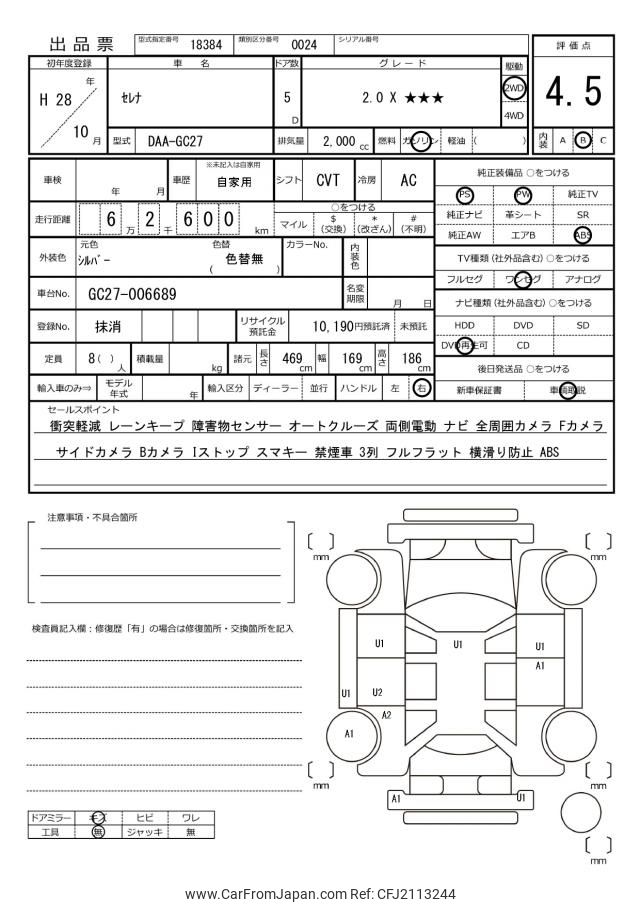 出品票 型式指定番号 18384 類別区分番号 0024 シリアル番号
評価点
4.5
内装 A B C
初年度登録 車名 ドア数 グレード 駆動
H 28 年 10 月
セレナ 5 D 2.0 X ★★★ 2WD 4WD
型式 DAA-GC27 排気量 2,000 cc 燃料 ガソリン 軽油 ( )
車検 年 月 車歴 ※未記入は自家用 自家用 シフト CVT 冷房 AC
走行距離 6 万 2 千 6 0 0 km
○をつける
マイル $(交換) *(改ざん) #(不明)
外装色 元色 シルバー 色替 ( 色替無 ) カラーNo. 内装色
車台No. GC27-006689 名変期限 月 日
登録No. 抹消 リサイクル預託金 10,190円預託済 未預託
定員 8( ) 人 積載量 kg 諸元 長さ 469cm 幅 169cm 高さ 186cm
輸入車のみ⇒ モデル年式 年 輸入区分 ディーラー 並行 ハンドル 左 右
純正装備品 ○をつける
PS PW 純正TV
純正ナビ 革シート SR
純正AW エアB ABS
TV種類(社外品含む) ○をつける
フルセグ ワンセグ アナログ
ナビ種類(社外品含む) ○をつける
HDD DVD SD
DVD再生可 CD
後日発送品 ○をつける
新車保証書 車輌取説
セールスポイント
衝突軽減 レーンキープ 障害物センサー オートクルーズ 両側電動 ナビ 全周囲カメラ Fカメラ
サイドカメラ Bカメラ Iストップ スマキー 禁煙車 3列 フルフラット 横滑り防止 ABS
注意事項・不具合箇所
検査員記入欄:修復歴「有」の場合は修復箇所・交換箇所を記入
ドアミラー キズ ヒビ ワレ
工具 無 ジャッキ 無
[ ] mm
[ ] mm
U1 U1 U1
A1
U1 U2
A2
A1
[ ] mm
[ ] mm
A1 U1
[ ] mm
www.CarFromJapan.com Ref: CFJ2113244